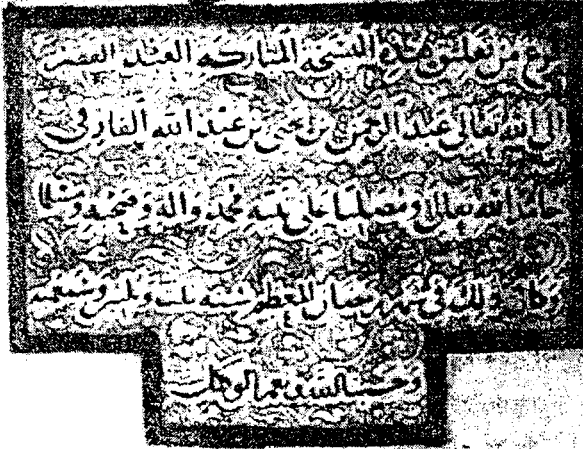 فرغ من تعليق هذه النسخة المباركة العبد الفقير
إلى الله تعالى عبد الرحمن بن يحيى بن عبد الله الفارقي
حامدا لله تعالى ومصليا على نبيه محمد وآله وصحبه ومسلما
وكان ذلك في شهر رمضان المعظم سنة ثلث وثلثين وسبعمية
وحسبنا الله ونعم الوكيل